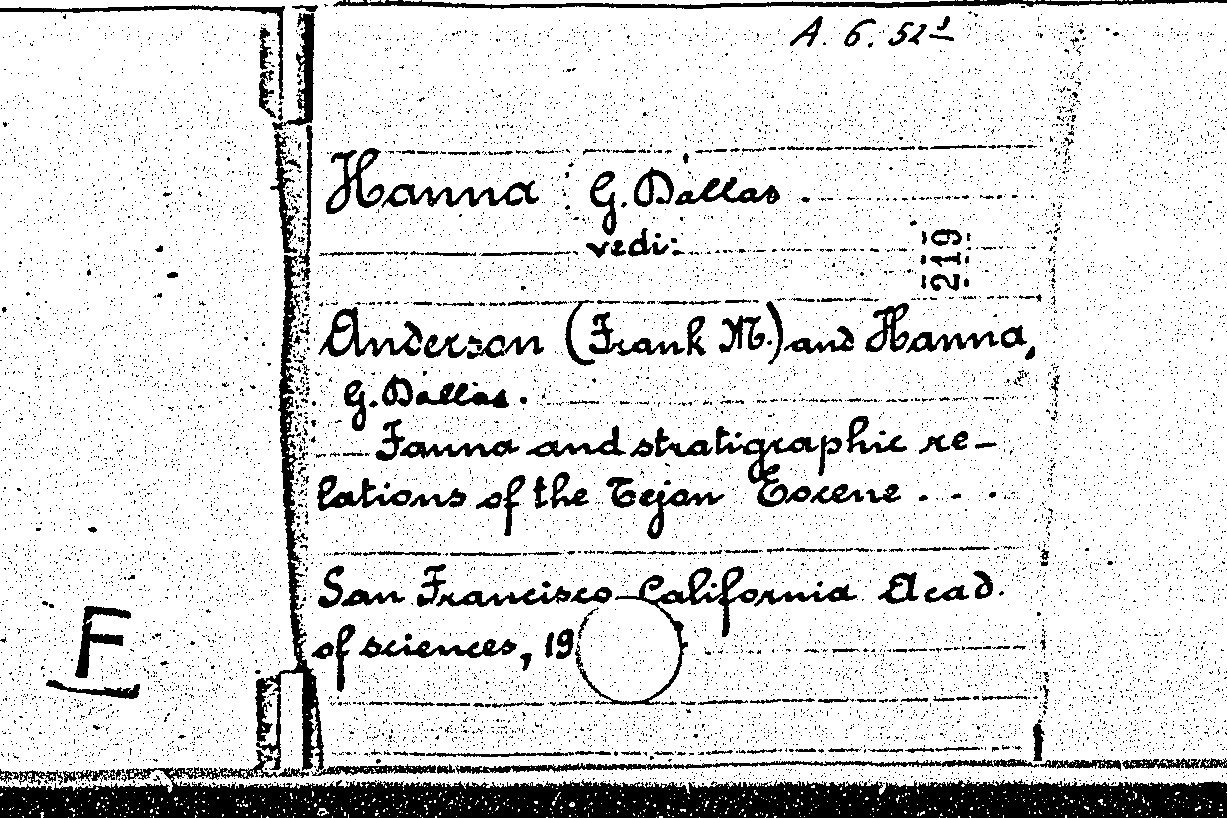 A. 6. 52¹
Hanna G. Dallas.
vedi:
219
Anderson (Frank M.) and Hanna,
G. Dallas.
Fauna and stratigraphic re-
lations of the Tejan Eocene . . .
San Francisco California Acad.
of sciences, 19
F